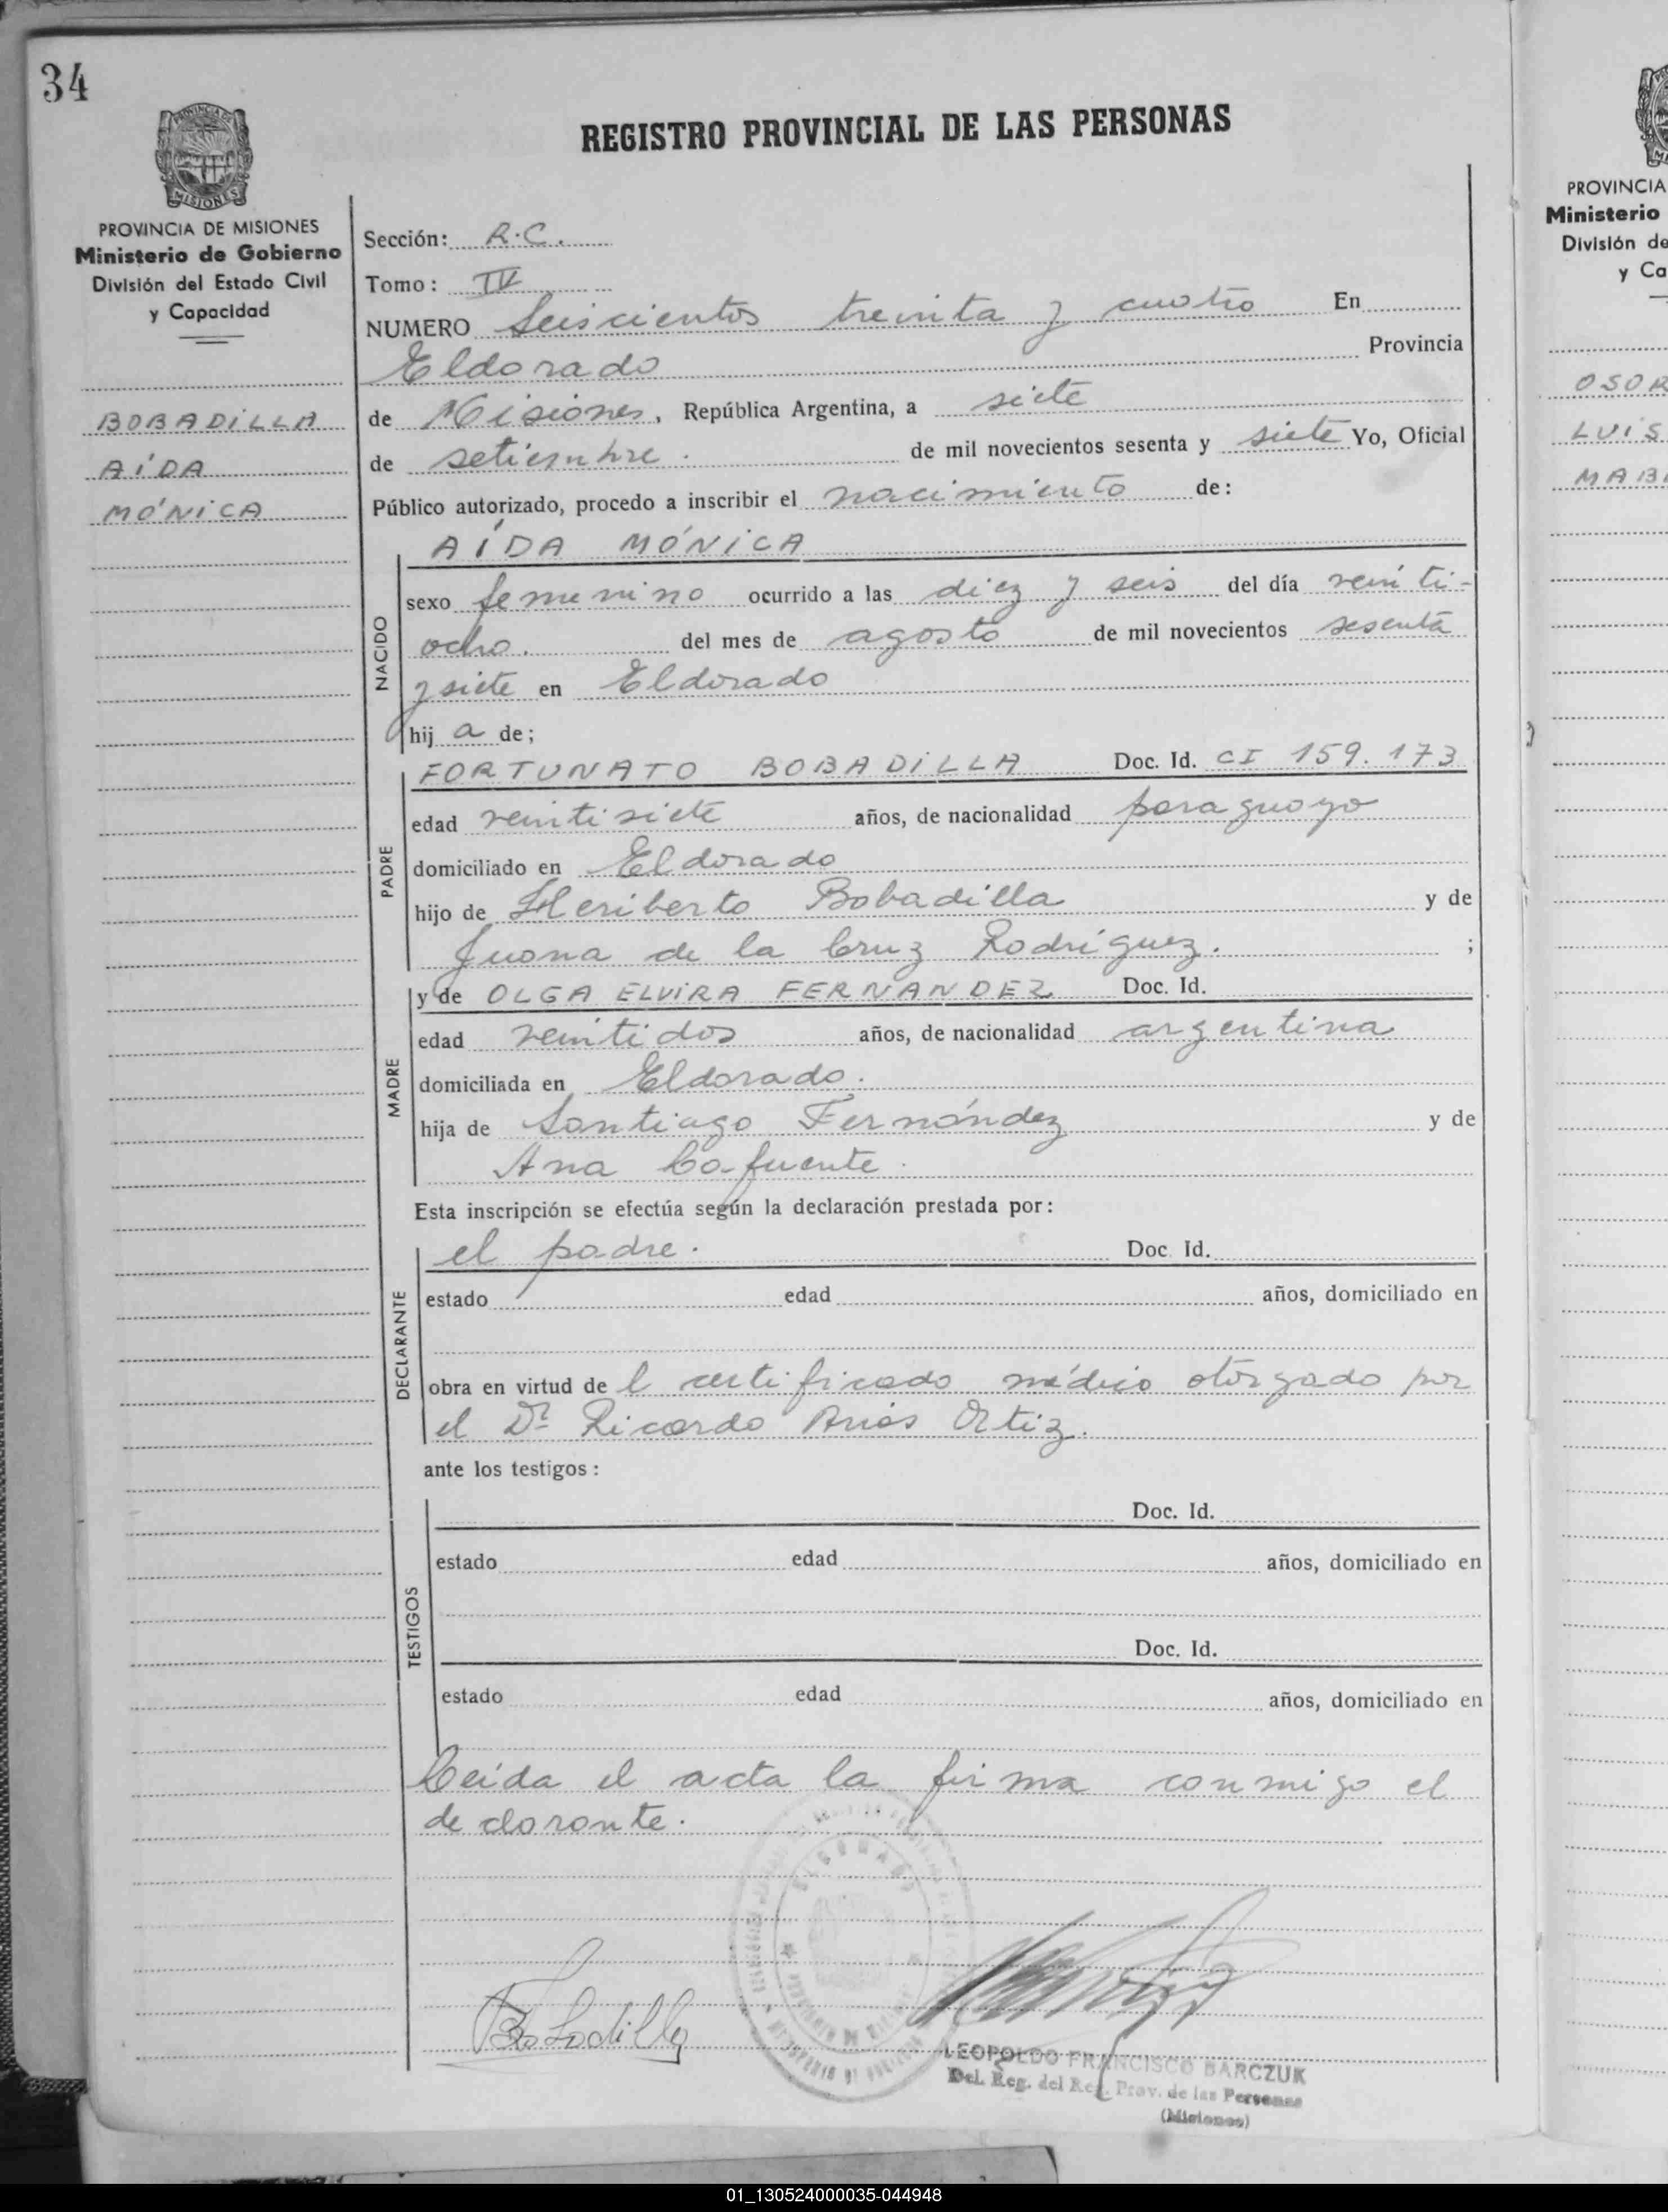 34
REGISTRO PROVINCIAL DE LAS PERSONAS
PROVINCIA DE MISIONES
Ministerio de Gobierno
División del Estado Civil
y Capacidad
BOBADILLA
AÍDA
MÓNICA
Sección: R.C.
Tomo: IV
NUMERO Seiscientos treinta y cuatro En
Eldorado Provincia
de Misiones, República Argentina, a siete
de setiembre. de mil novecientos sesenta y siete Yo, Oficial
Público autorizado, procedo a inscribir el nacimiento de:
NACIDO
AÍDA MÓNICA
sexo femenino ocurrido a las diez y seis del día veinti-
ocho. del mes de agosto de mil novecientos sesenta
y siete en Eldorado
hij a de;
PADRE
FORTUNATO BOBADILLA Doc. Id. CI 159.173
edad veintisiete años, de nacionalidad paraguayo
domiciliado en Eldorado
hijo de Heriberto Bobadilla y de
Juana de la Cruz Rodríguez. ;
MADRE
y de OLGA ELVIRA FERNANDEZ Doc. Id.
edad veintidos años, de nacionalidad argentina
domiciliada en Eldorado.
hija de Santiago Fernández y de
Ana
Esta inscripción se efectúa según la declaración prestada por:
DECLARANTE
el padre. Doc. Id.
estado edad años, domiciliado en
obra en virtud de l certificado médico otorgado por
el Dr. Ricardo Arias Ortiz.
ante los testigos:
TESTIGOS
Doc. Id.
estado edad años, domiciliado en
Doc. Id.
estado edad años, domiciliado en
Leída el acta la firma conmigo el
declarante.
Bobadilla
LEOPOLDO FRANCISCO BARCZUK
Del. Reg. del Reg. Prov. de las Personas
(Misiones)
PROVINCIA
Ministerio
División de
y Ca
OSOR
LUIS
MAB
01_130524000035-044948